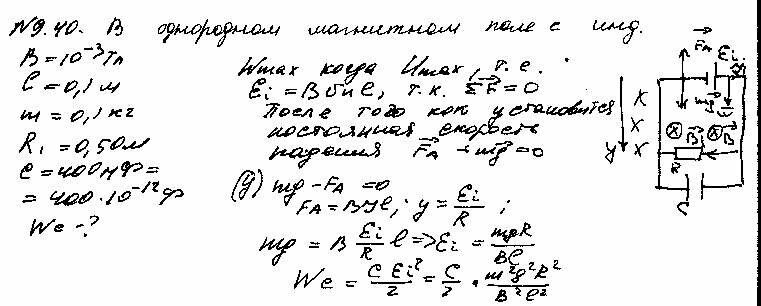 №9.40. В однородном магнитном поле с инд.
B = 10⁻³ Тл
l = 0,1 м
m = 0,1 кг
R₁ = 0,50 м
C = 400 пФ =
= 400·10⁻¹² Ф
Wc - ?
Wmax когда Umax, т.е.
Ei = Bυl, т.к. ΣF = 0
После того как установится
постоянная скорость
падения FA + mg = 0
(y) mg - FA = 0
FA = BYl; y = Ei/R;
mg = B Ei/R l => Ei = mgR/Bl
Wc = CEi²/2 = C/2 · m²g²R²/B²l²
FA Ei
mg
y
X
X
X
B B
R
C